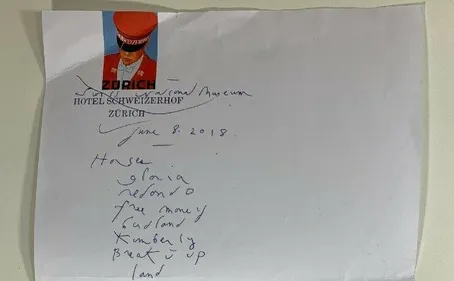 ZÜRICH
Swiss National Museum
HOTEL SCHWEIZERHOF
ZÜRICH
June 8. 2018
Horses
gloria
redondo
free money
birdland
Kimberly
Break it up
land